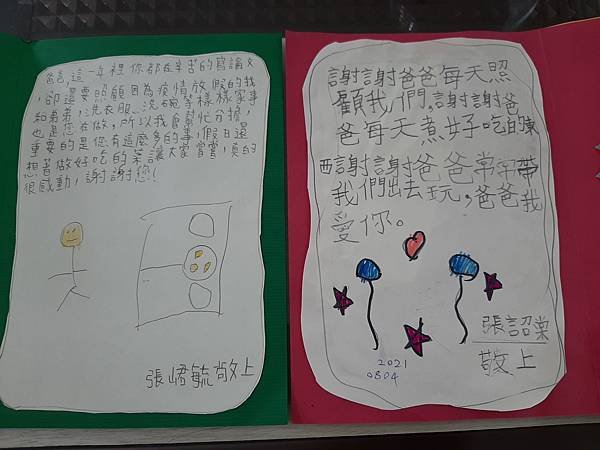 爸爸,這一年裡你都在辛苦的寫論文
,卻還要照顧因為疫情放假的我
和弟弟,洗衣服、洗碗等樣樣家事
也都您在做,所以我會幫忙分擔,
重要的是您有這麼多的事,假日還
想著做好吃的菜讓大家嘗嘗,真的
很感動,謝謝您!
張峮毓敬上
謝謝爸爸每天照
顧我們,謝謝爸
爸每天煮好吃的東
西謝謝爸爸常常帶
我們出去玩,爸爸我
愛你。
張詔棠
敬上
2021
0804